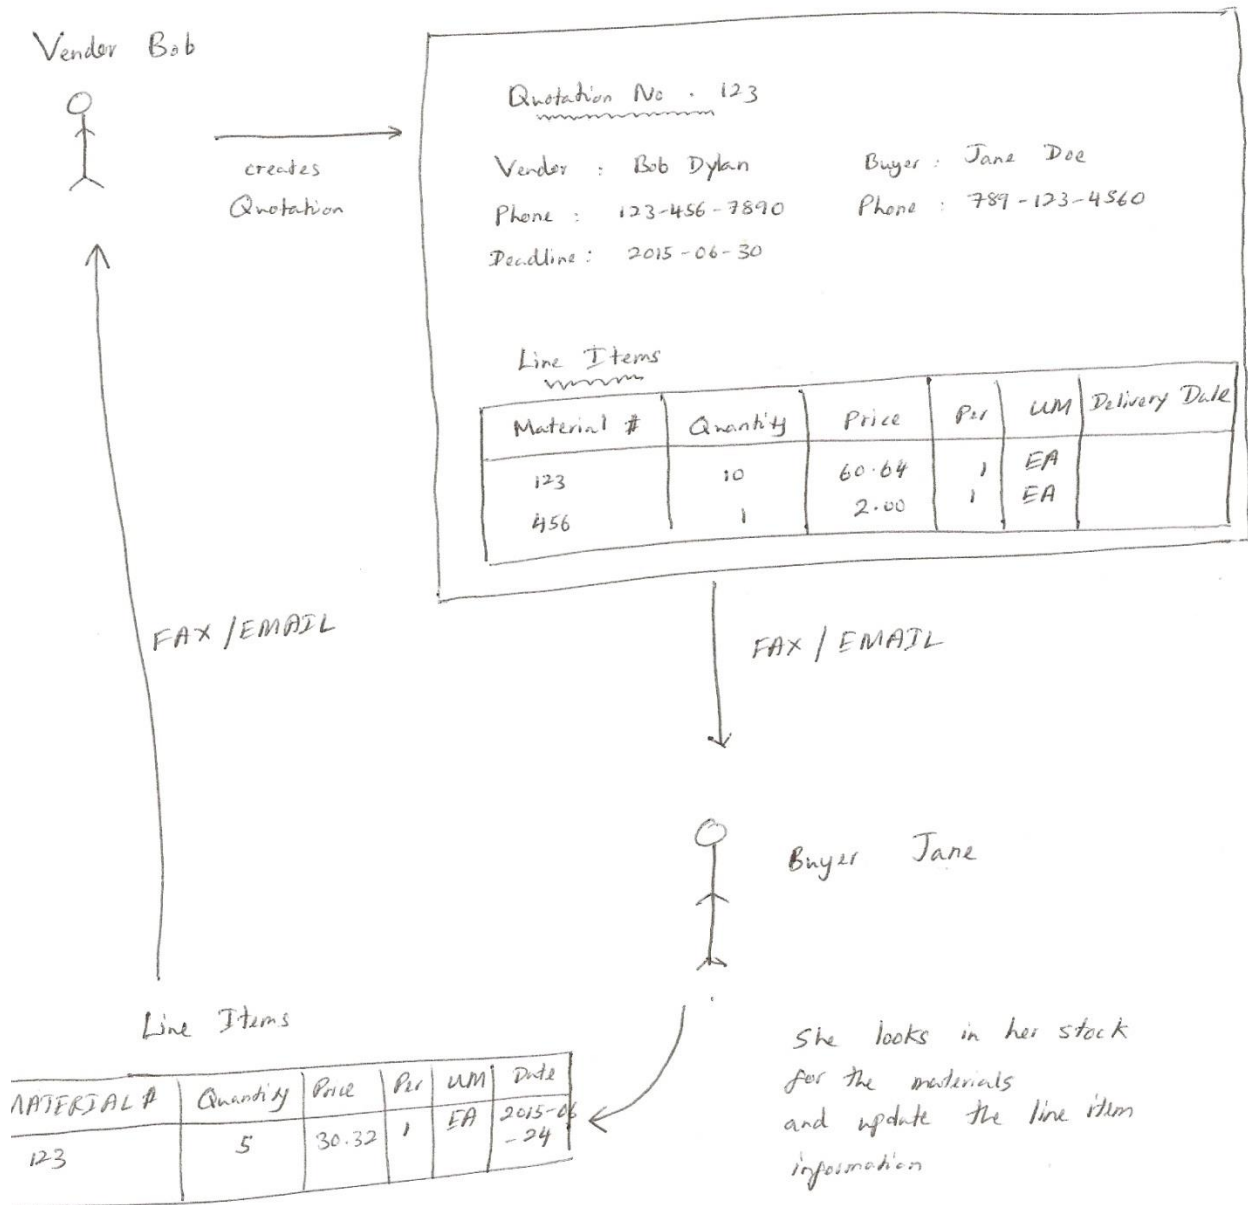 Vendor Bob
creates
Quotation
Quotation No. 123
Vendor : Bob Dylan
Buyer : Jane Doe
Phone : 123-456-7890
Phone : 789-123-4560
Deadline : 2015-06-30
Line Items
Material # Quantity Price Per UM Delivery Date
123 10 60.64 1 EA
456 1 2.00 1 EA
FAX / EMAIL
FAX / EMAIL
Buyer Jane
She looks in her stock
for the materials
and update the line item
information
Line Items
MATERIAL # Quantity Price Per UM Date
123 5 30.32 1 EA 2015-06
-24